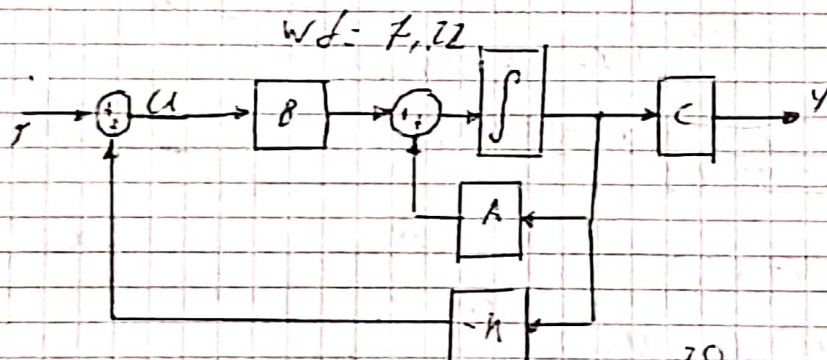 wd = 7,22
r
+
±
u
B
+
+
∫
C
y
A
-K
20